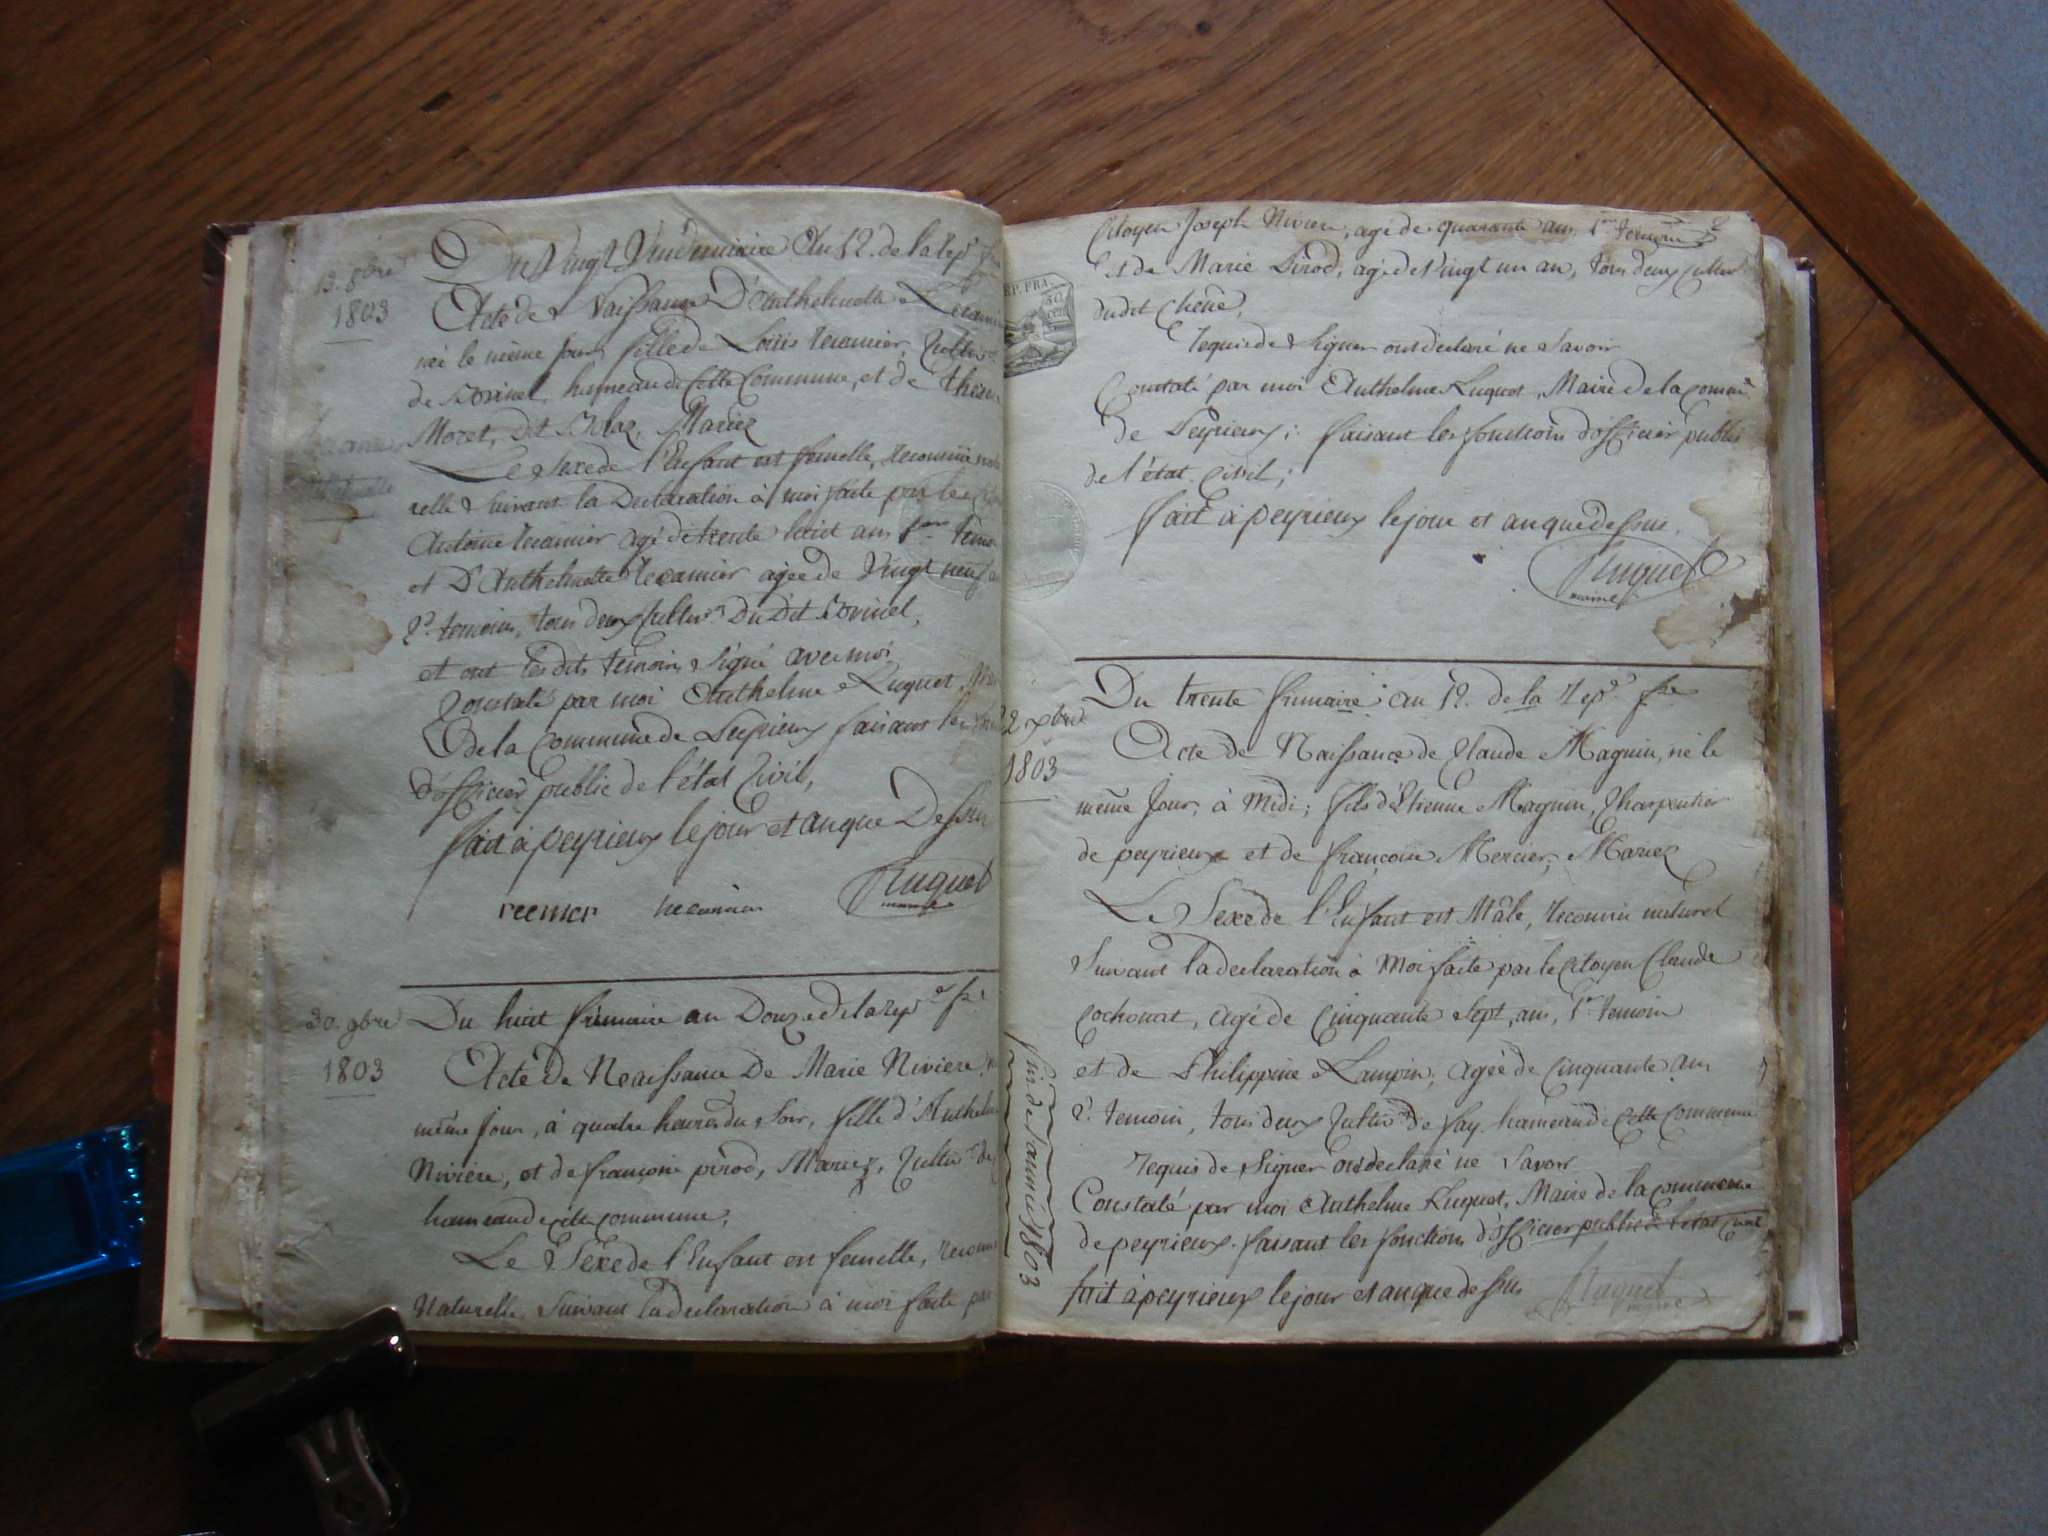 13. 8bre
1803
Du Vingt Vendemiaire An 12. de la rep.
Acte de Naissance D'Anthelmette
née le même jour fille de Louis recamier, Cultiv.
hameau de Cette Commune, et de
Moret, dit Mariez
Le Sexe de l'Enfant est femelle, reconnüe
relle suivant la Declaration à moi faite par le
Antoine recamier agé de trente huit ans 1er temoin
et D'Anthelmette recamier agée de Vingt neuf
2d. temoins, tous deux Cultivrs. Du Dit
et ont les dits temoins Signé avec moi
Constaté par moi Anthelme Luquet,
de la Commune de Peyrieux faisant les
d'officier public de l'état Civil,
fait à peyrieux le jour et an que Dessus
recmier recamier Luquet
maire
30. 9bre
1803
Du huit frimaire an Douze de la rep.e fse
Acte De Naissance De Marie Niviere,
même jour, à quatre heures du Soir, fille d'Anthelme
Niviere, et de françoise pirod, Mariez, Cultiv.rs de
hameau de cette commune,
Le Sexe de l'Enfant est femelle,
Naturelle, Suivant la declaration à moi faite par
Citoyen Joseph Niviere, agé de quarante ans, 1er temoin
Et de Marie Pirod, agée de Vingt un an, tous deux
dudit Chêne,
requis de Signer ont declaré ne Savoir
Constaté par moi Anthelme Luquet, Maire de la commune
de Peyrieux; faisant les fonctions d'officier public
de l'état Civil;
fait à peyrieux le jour et an que dessus.
Luquet
maire
REP. FRA.
50
cent
22 xbre
1803
Du trente frimaire an 12. de la Rep.e fse
Acte de Naissance de Claude Magnin, né le
même Jour, à Midi; fils d'Etienne Magnin, Charpentier
de peyrieux et de françoise Mercier, Mariez
Le Sexe de l'Enfant est Mâle, reconnu naturel
Suivant la declaration à Moi faite par le Citoyen Claude
Cochonat, agé de Cinquante Sept, ans, 1er temoin
et de Philippine Lampin, agée de Cinquante ans
2d. temoin, tous deux Cultiv.rs de fay. hameau de Cette Commune
requis de Signer ont declaré ne Savoir
Constaté par moi Anthelme Luquet, Maire de la commune
de peyrieux. faisant les fonctions d'officier public de l'état Civil
fait à peyrieux le jour et an que dessus Luquet
maire
fin de l'année 1803